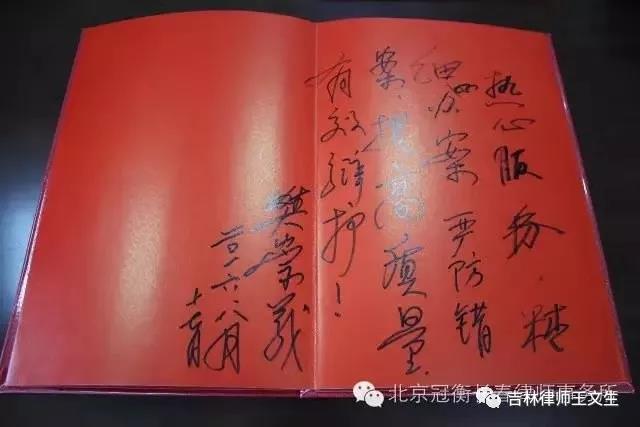 热心服务、精
细办案 严防错
案、提高质量、
有效辩护！
樊崇义
二〇一六、八月
北京冠衡长春律师事务所
吉林律师王文生